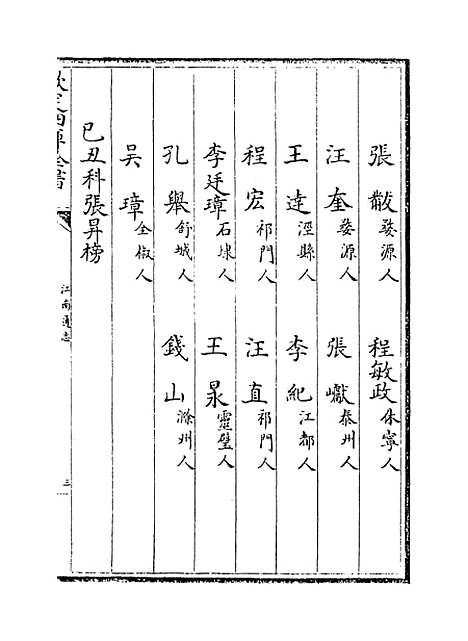 張黻婺源人 程敏政休寧人
汪奎婺源人 張巘泰州人
王達涇縣人 李紀江都人
程宏祁門人 汪直祁門人
李廷璋石埭人 王杲靈璧人
孔舉舒城人 錢山滁州人
吳璋全椒人
己丑科張昇榜
欽定四庫全書
江南通志
三